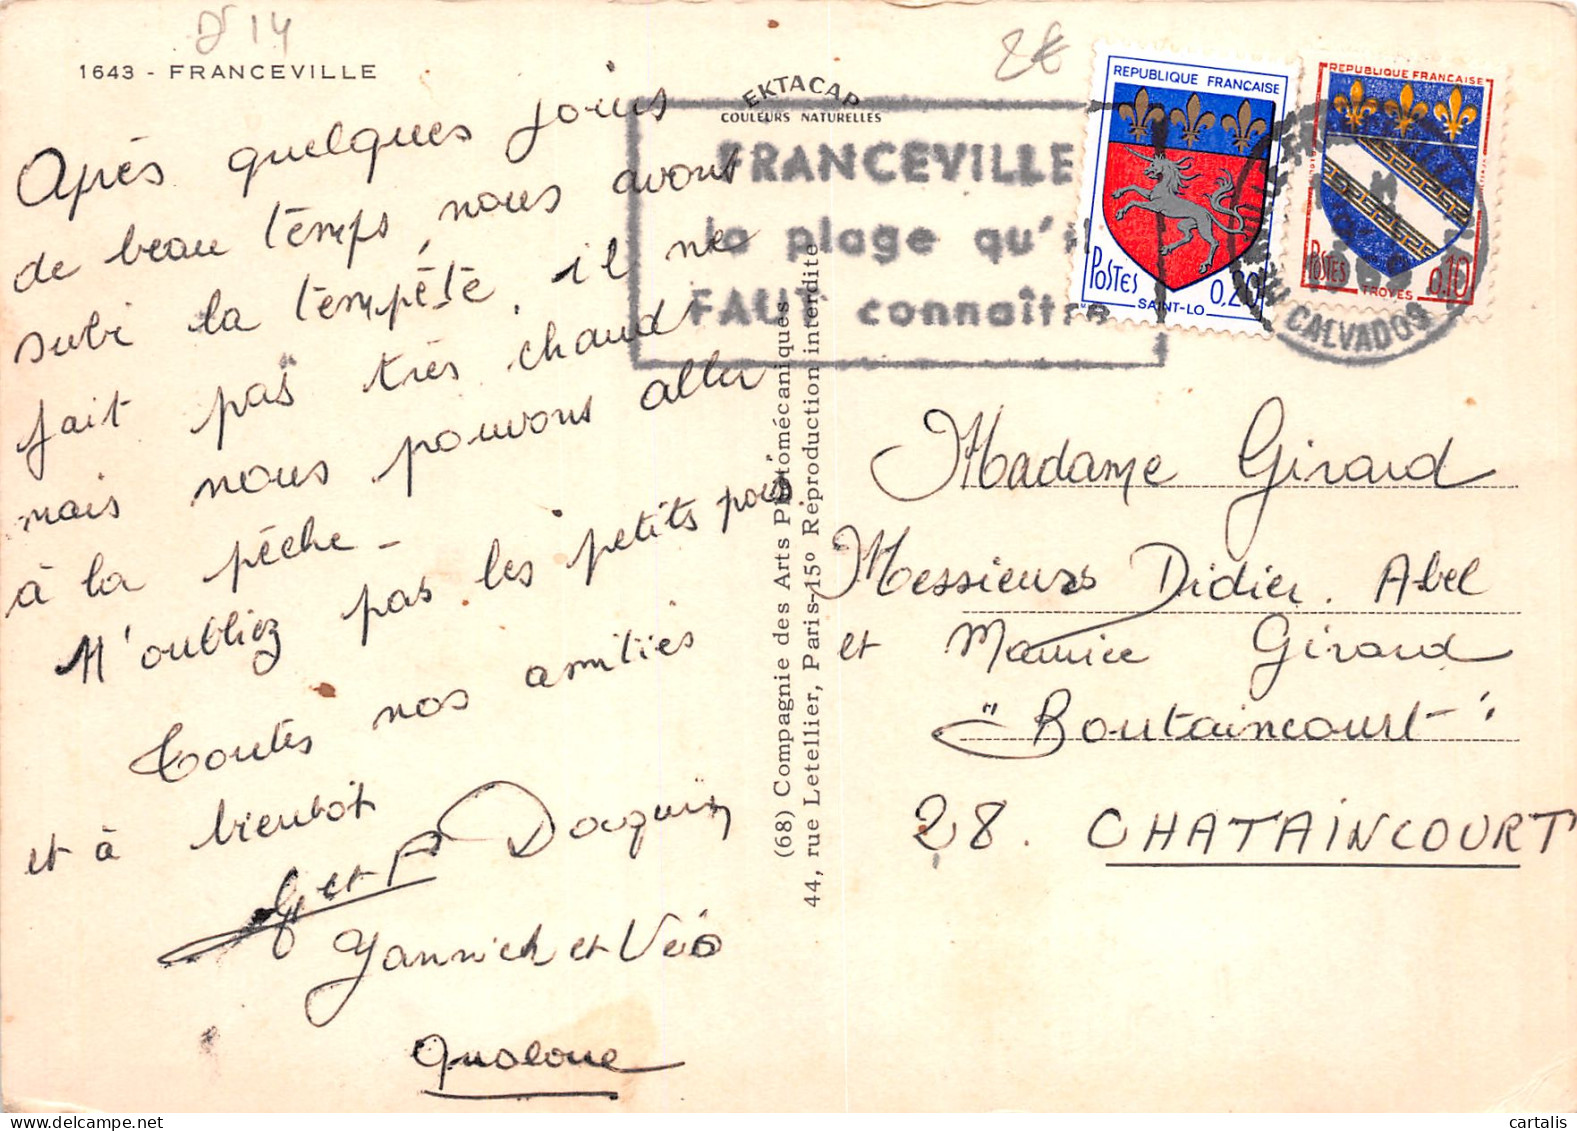 Dt 14
1643 - FRANCEVILLE
Après quelques jours
de beau temps, nous avons
subi la tempête, il ne
fait pas très chaud
mais nous pouvons aller
à la pêche -
N'oubliez pas les petits pois
Toutes nos amitiés
et à bientôt
et Jacquin
Yannick et Véo
2€
EKTACAP
COULEURS NATURELLES
FRANCEVILLE
la plage qu'il
FAUT connaître
REPUBLIQUE FRANCAISE
POSTES 0,20
SAINT-LO
REPUBLIQUE FRANCAISE
POSTES 0,10
TROYES
CALVADOS
(68) Compagnie des Arts Photomécaniques
44, rue Letellier, Paris-15º Reproduction interdite
Madame Girard
Messieurs Didier. Abel
et Maurice Girard
"Boutaincourt"
28. CHATAINCOURT
cartalis